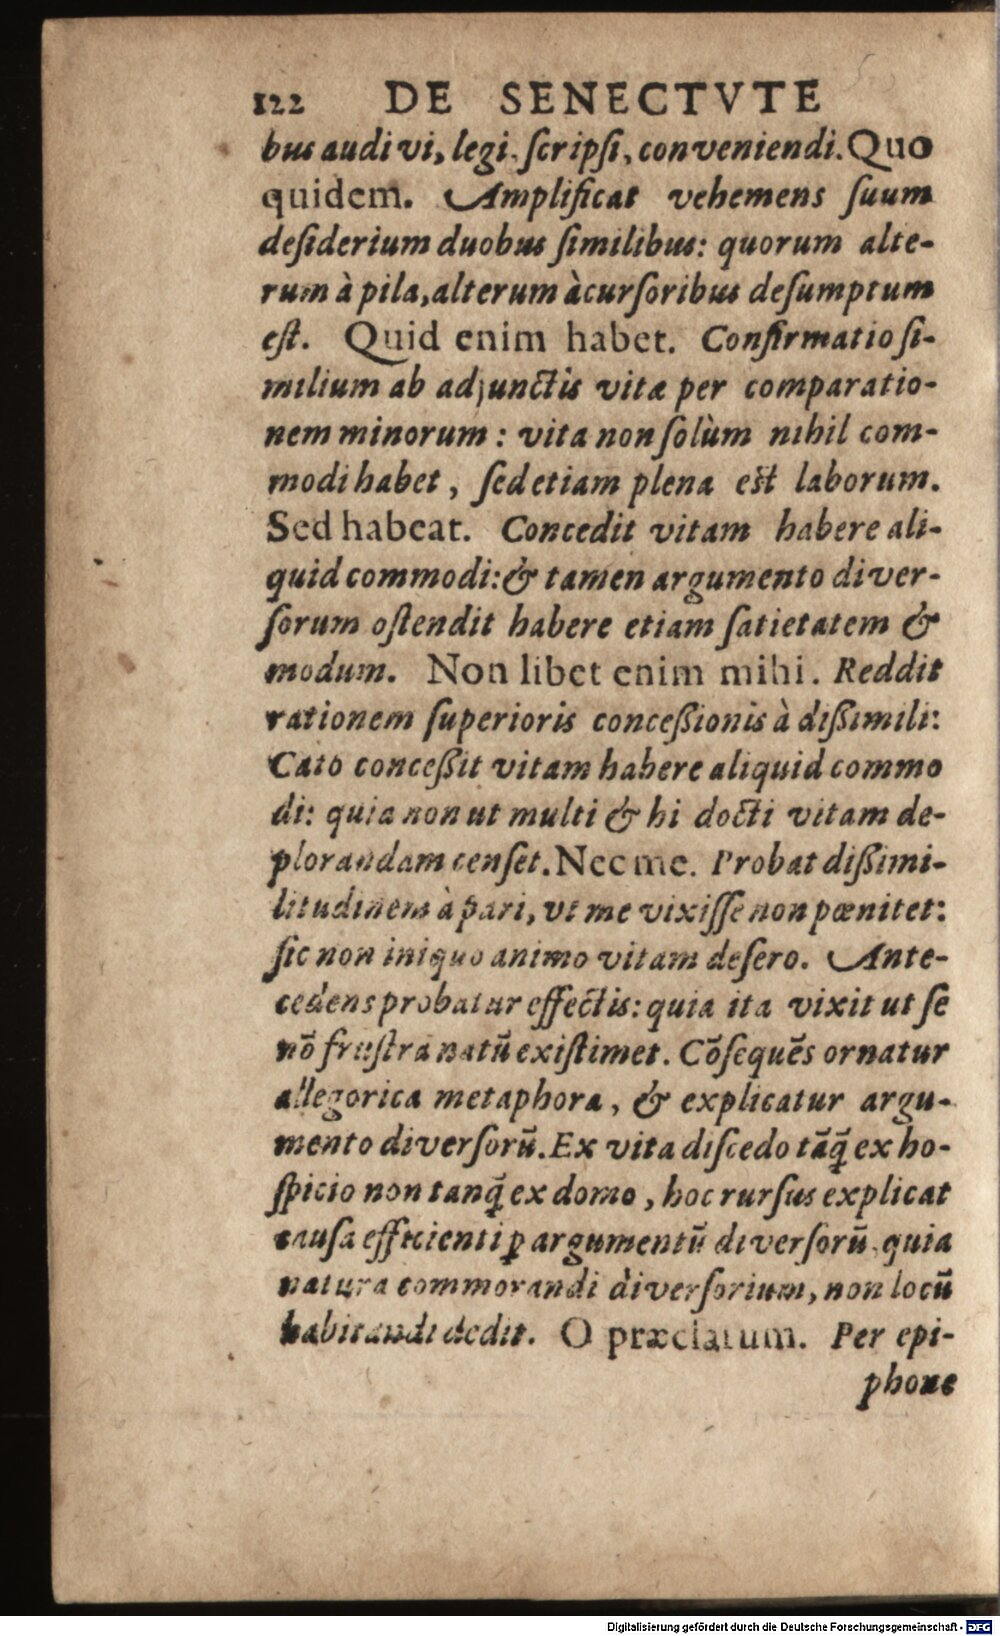 122 DE SENECTVTE
bus audivi, legi, ſcripſi, conveniendi. Quo
quidem. Amplificat vehemens ſuum
deſiderium duobus ſimilibus: quorum alte-
rum à pila, alterum à curſoribus deſumptum
eſt. Quid enim habet. Confirmatio ſi-
milium ab adjunctis vitæ per comparatio-
nem minorum: vita non ſolùm nihil com-
modi habet, ſed etiam plena eſt laborum.
Sed habeat. Concedit vitam habere ali-
quid commodi: & tamen argumento diver-
ſorum oſtendit habere etiam ſatietatem &
modum. Non libet enim mihi. Reddit
rationem ſuperioris conceßionis à dißimili:
Cato conceßit vitam habere aliquid commo
di: quia non ut multi & hi docti vitam de-
plorandam cenſet. Nec me. Probat dißimi-
litudinem à pari, vt me vixiſſe non pœnitet:
ſic non iniquo animo vitam deſero. Ante-
cedens probatur effectis: quia ita vixit ut ſe
nō fruſtra natū exiſtimet. Cōſequēs ornatur
allegorica metaphora, & explicatur argu-
mento diverſorū. Ex vita diſcedo tāq̃ ex ho-
ſpicio non tanq̃ ex domo, hoc rurſus explicat
cauſa efficienti ꝑ argumentū diverſorū, quia
natura commorandi diverſorium, non locū
habitandi dedit. O præclarum. Per epi-
phone
Digitalisierung gefördert durch die Deutsche Forschungsgemeinschaft - DFG